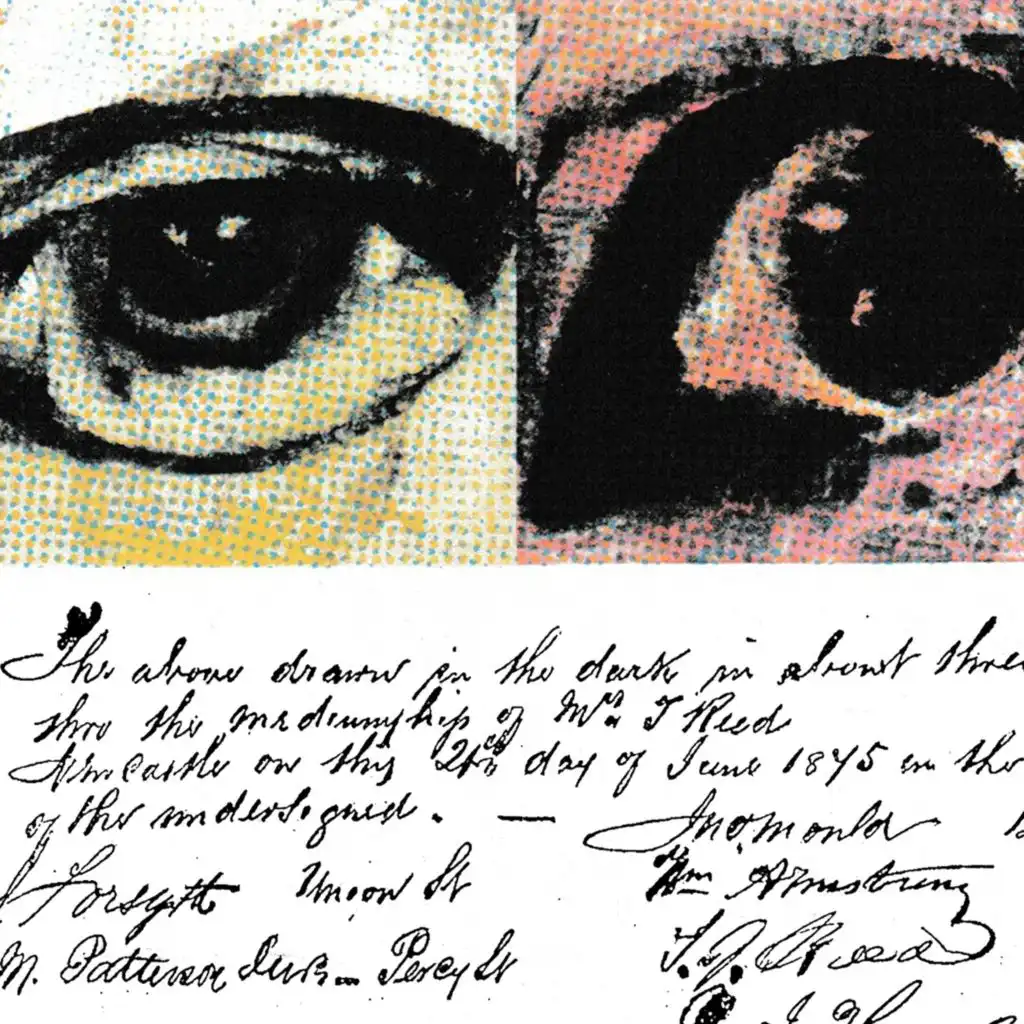 The above drawn in the dark in about three
thro the mediumship of Mrs T Reed
Newcastle on this day of June 1875 in the
of the undersigned. —
Jno. Mould
J Forsyth Union St
Wm Armstrong
M. Patterson Percy St
T. J. Reed